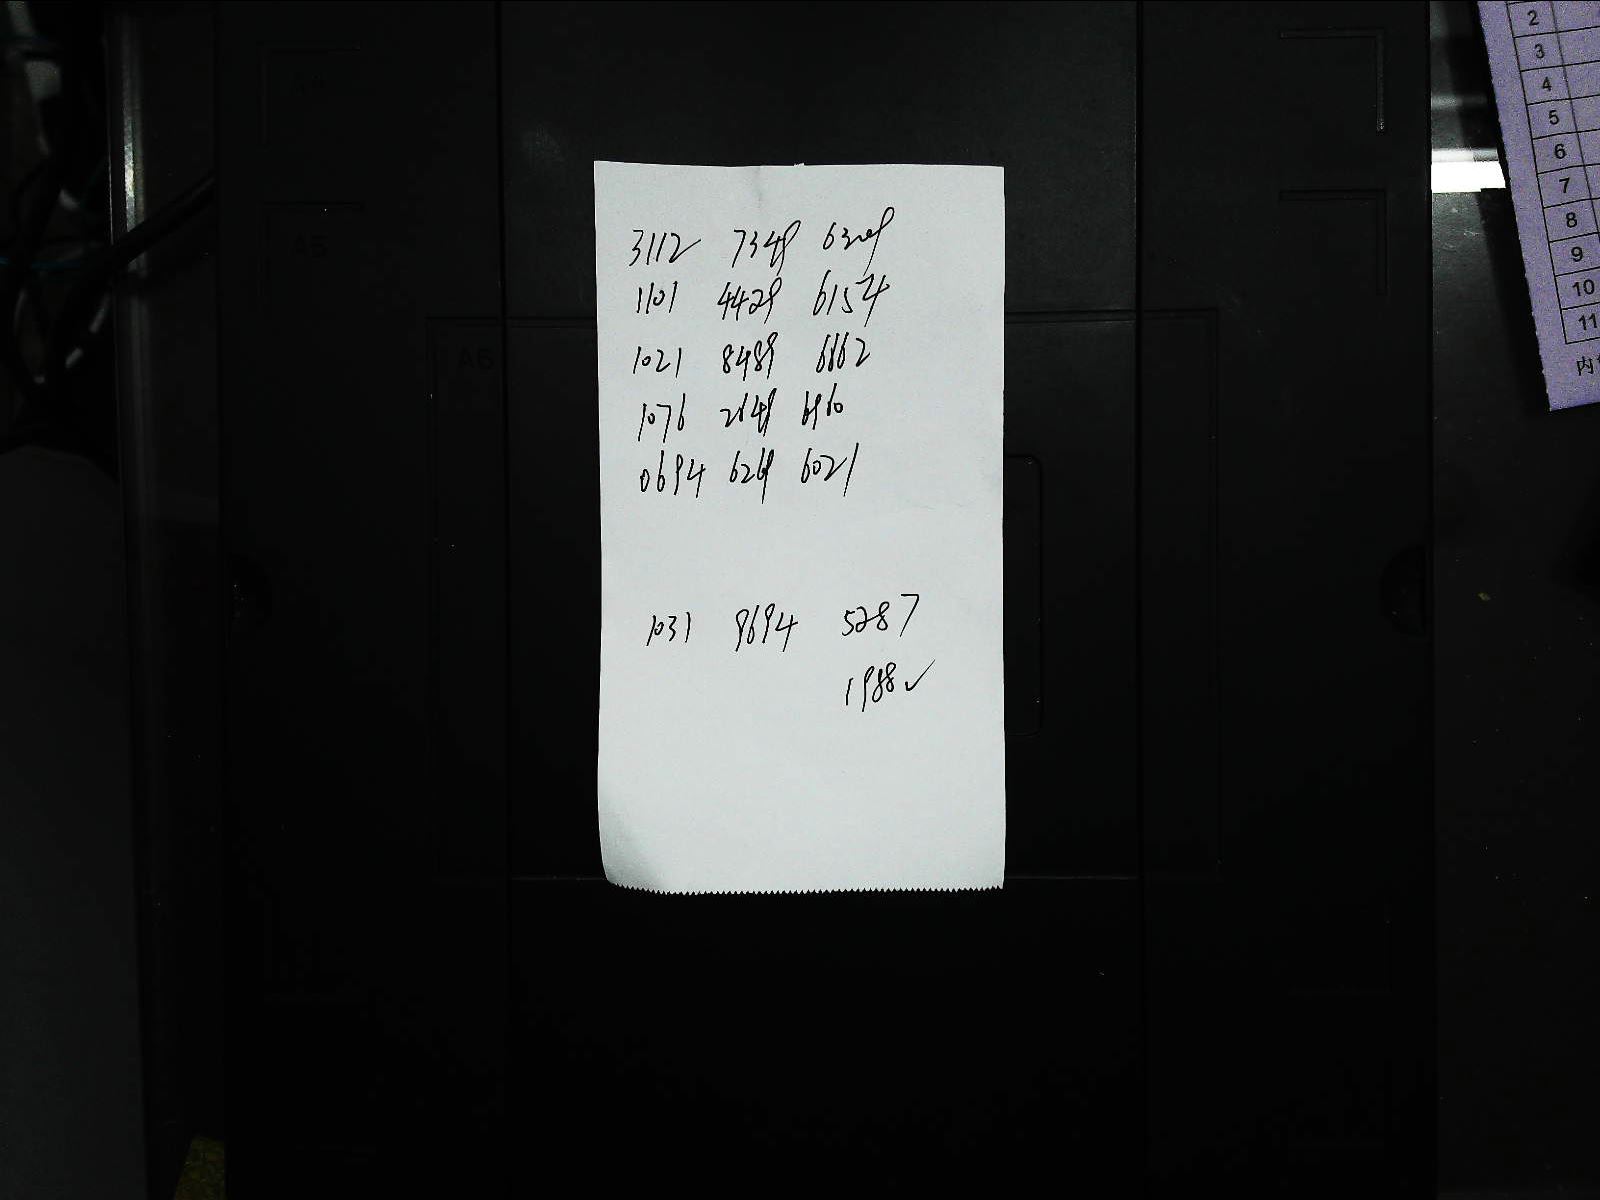 3112 7349 6309
1101 4429 6154
1021 8489 6862
1076 2649 6960
0694 6269 6021
1031 9694 5287
1988✓
A5
A6
2
3
4
5
6
7
8
9
10
11
内